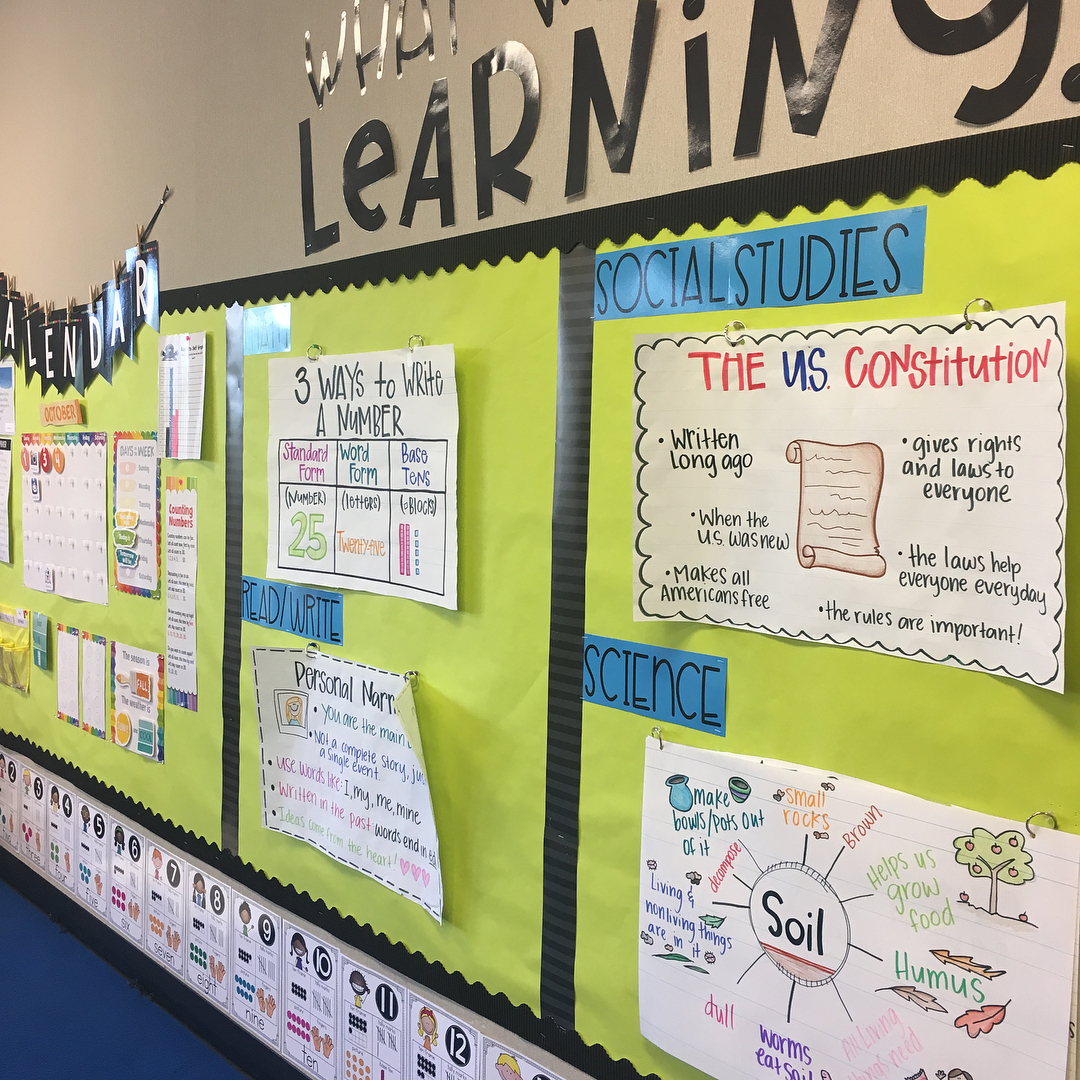 WHAT
LEARNING.
ALENDAR
OCTOBER
DAYS OF THE WEEK
Counting
Numbers
The season is
FALL
The weather is
MATH
3 WAYS to WRITE
A NUMBER
Standard
Form
Word
Form
Base
Tens
(Number)
(letters)
(Blocks)
25
Twenty-five
READ/WRITE
Personal Narr
• You are the main
• Not a complete story, jus
a single event.
• use words like: I, my, me, mine
• Written in the past words end in ed
• Ideas come from the heart!
SOCIAL STUDIES
THE U.S. CONSTITUTION
• Written
Long ago
• When the
U.S. was new
• Makes all
Americans free
• gives rights
and laws to
everyone
• the laws help
everyone everyday
• the rules are important!
SCIENCE
Soil
make
bowls/pots out
of it
small
rocks
Brown
decompose
Helps us
grow
food
Living &
nonliving things
are in it
Humus
dull
worms
eat soil
All living
need
2
3
three
4
four
5
five
6
six
7
seven
8
eight
9
nine
10
ten
11
12